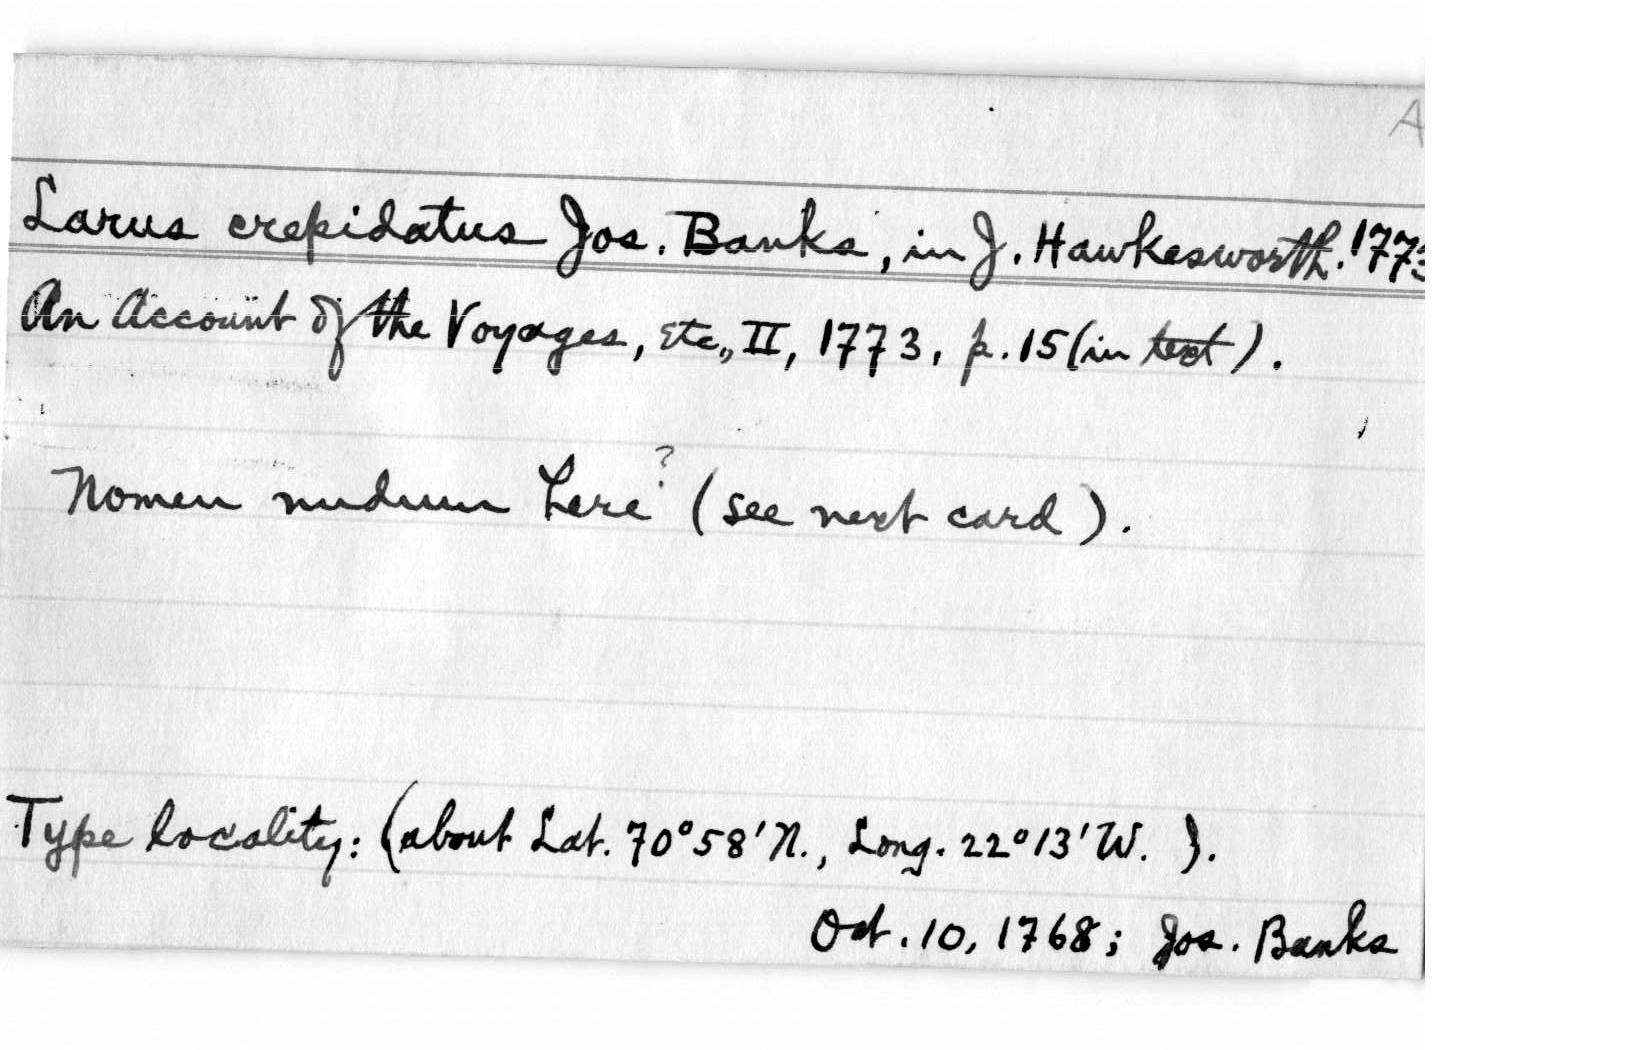 A
Larus crepidatus Jos. Banks, in J. Hawkesworth. 1773
An Account of the Voyages, etc., II, 1773, p. 15 (in text).
Nomen nudum here? (see next card).
Type locality: (about Lat. 70°58'N., Long. 22°13'W. ).
Oct. 10, 1768; Jos. Banks